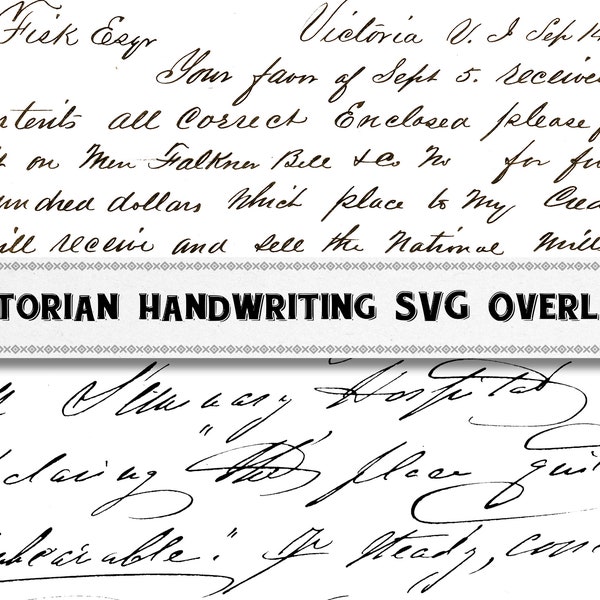 Fisk Esqr Victoria V. I Sep 14
Your favor of Sept 5. receive
ntents all Correct Enclosed please
on Men Falkner Bell & Co No for fi
undred dollars which place to My Cred
ill receive and sell the National Mill
TORIAN HANDWRITING SVG OVERL
Seminary Hospital
daring "this place qui
nbearable". If steady, con